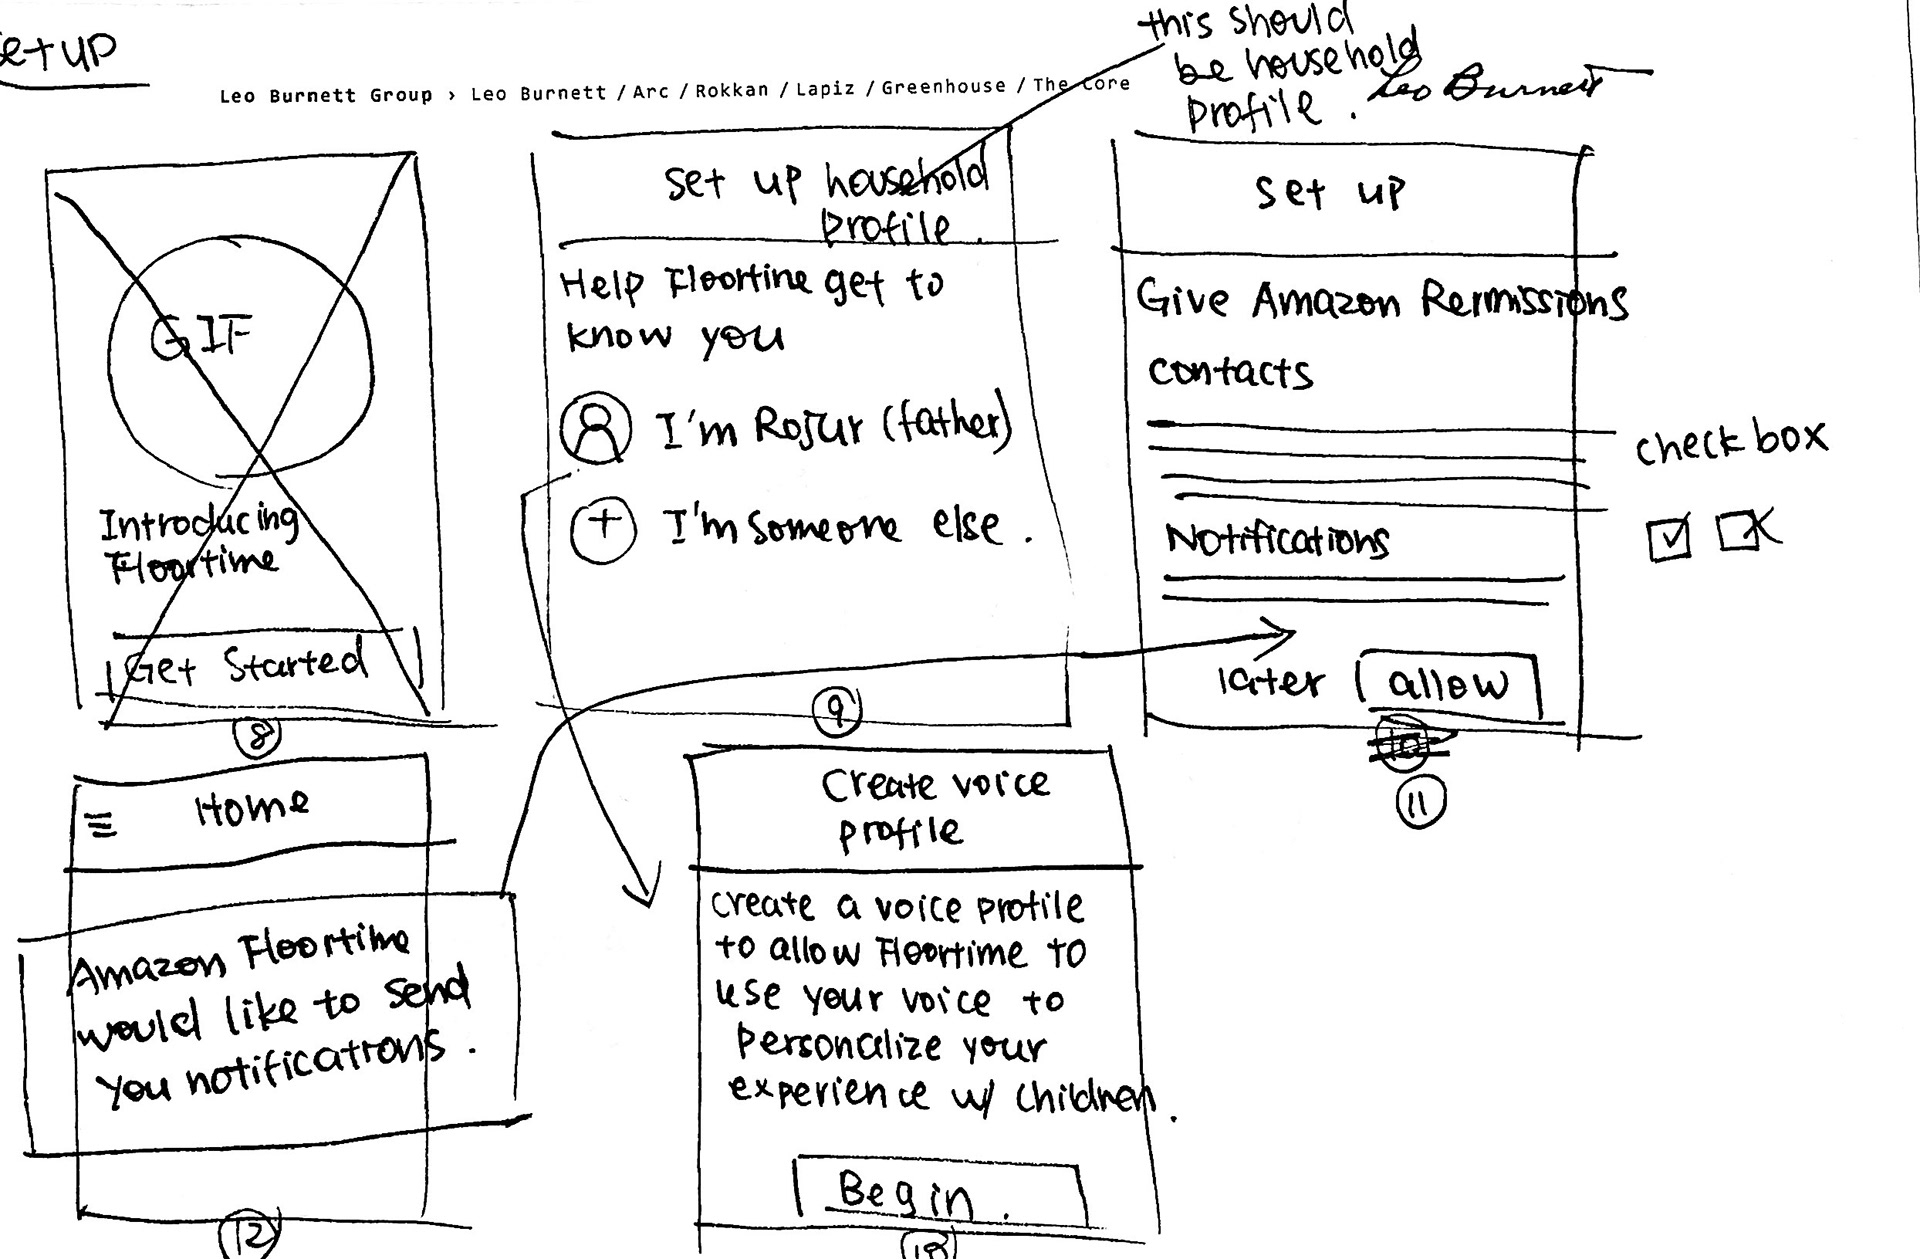 Set up
this should
be household
profile.
Leo Burnett Group › Leo Burnett / Arc / Rokkan / Lapiz / Greenhouse / The Core
Leo Burnett
GIF
Introducing
Floortime
Get Started
8
set up household
profile.
Help Floortine get to
know you
I'm Rojur (father)
+ I'm someone else.
9
set up
Give Amazon Permissions
contacts
check box
Notifications
later allow
10
11
Home
Amazon Floortime
would like to send
you notifications.
12
Create voice
profile
create a voice profile
to allow Floortime to
use your voice to
personalize your
experience w/ children.
Begin.